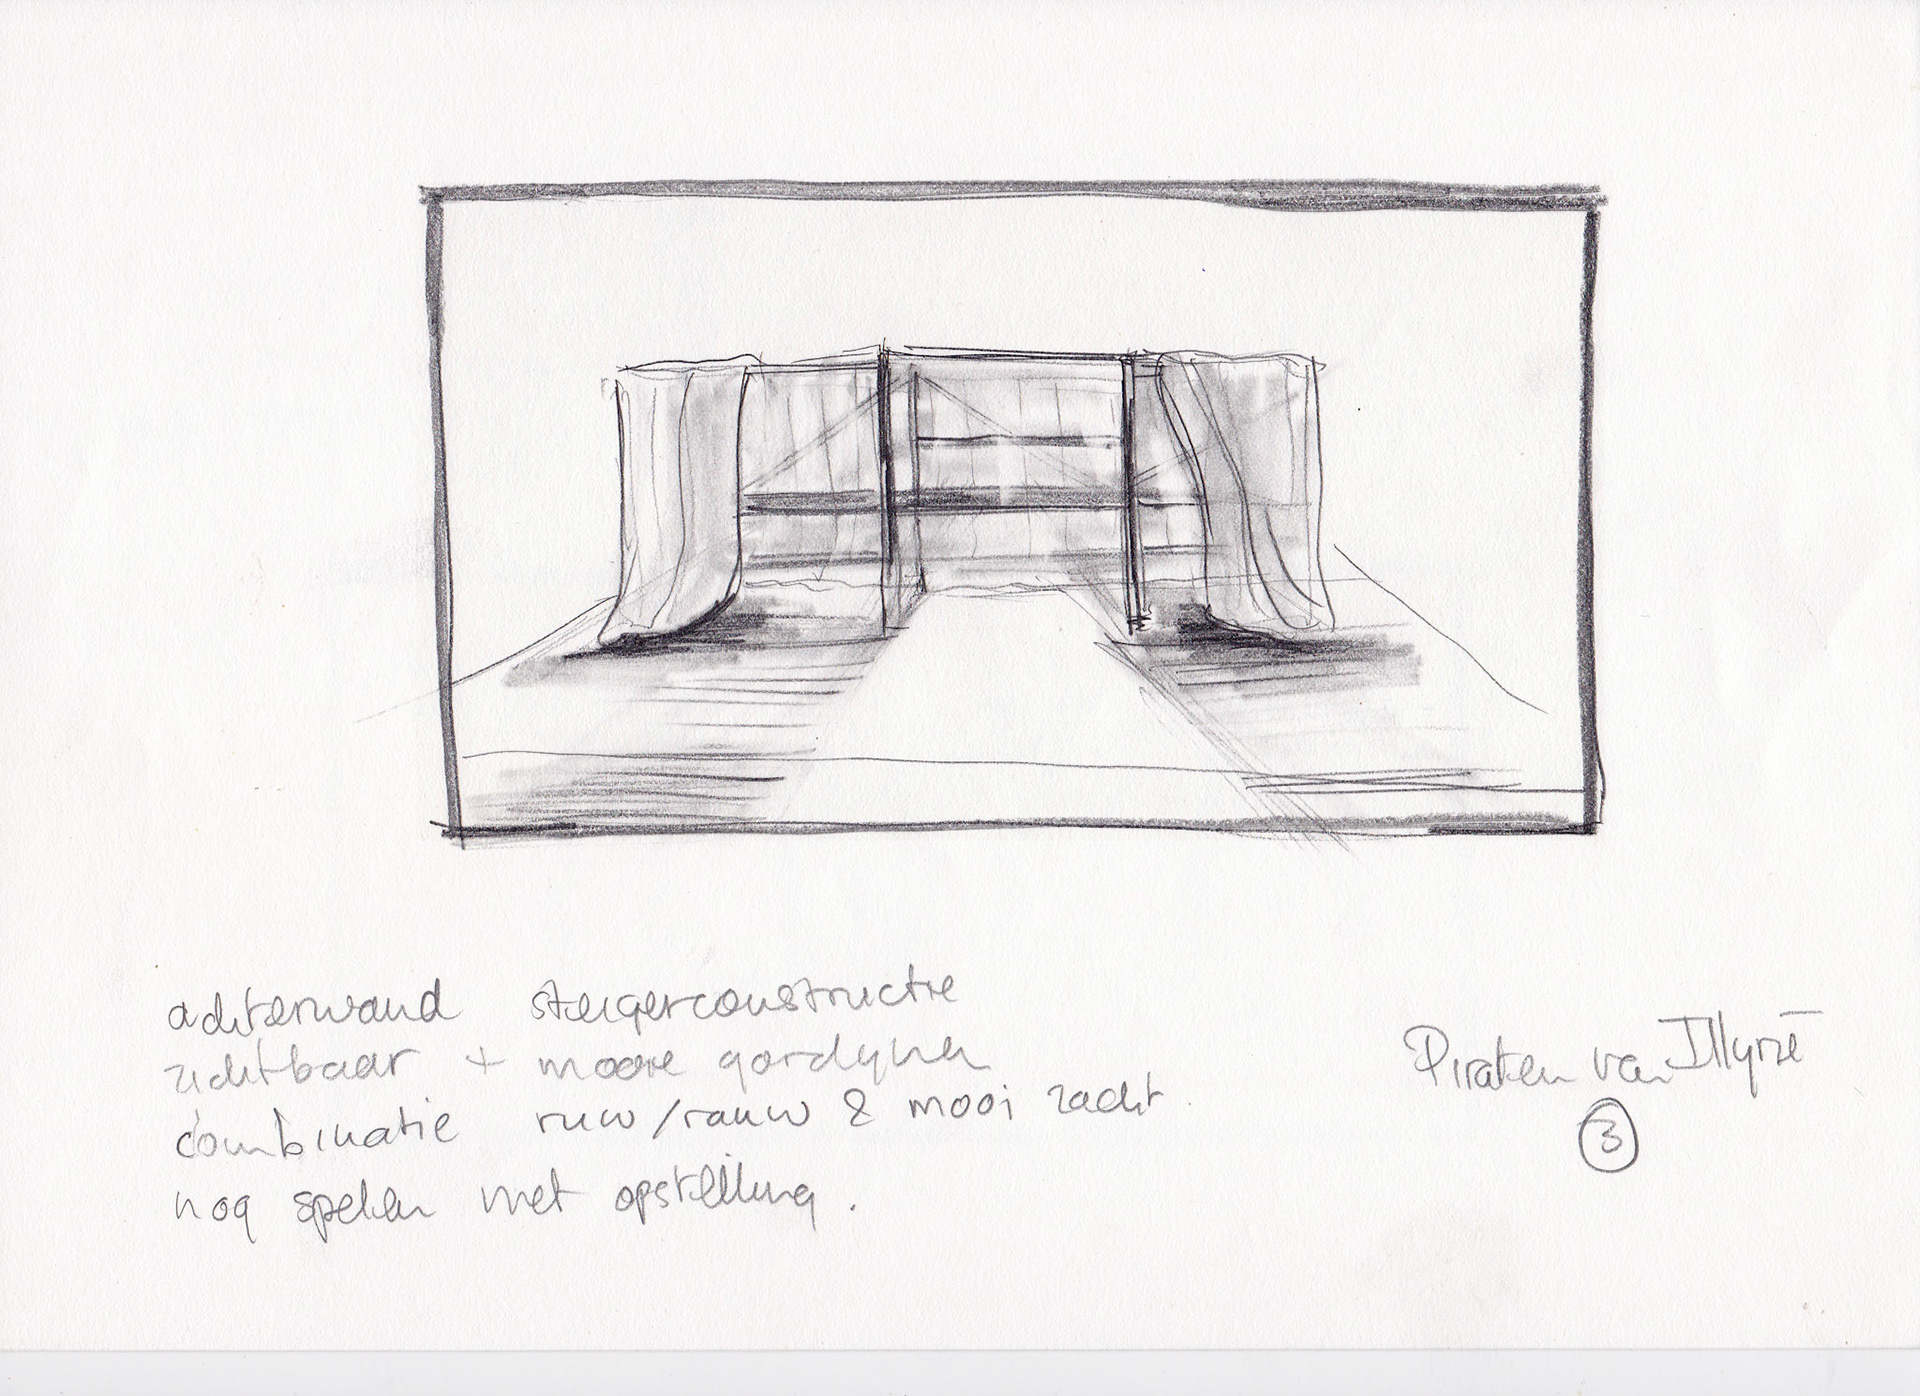 achterwand steigerconstructie
zichtbaar + mooie gordijnen
combinatie ruw/rauw & mooi zacht.
nog spelen met opstelling.
Piraten van Illyrië
3